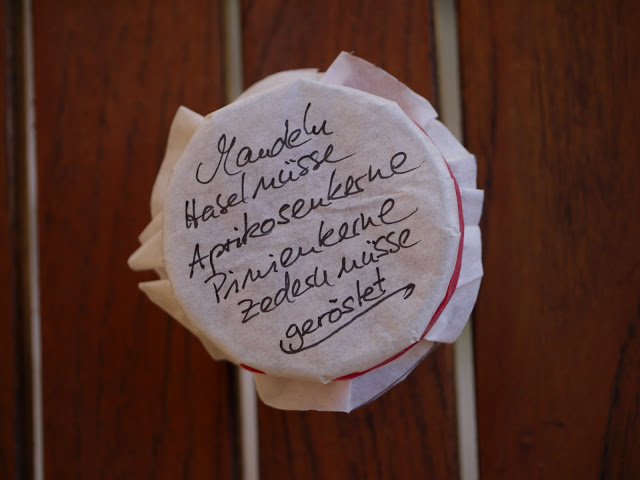 Mandeln
Haselnüsse
Aprikosenkerne
Pinienkerne
Zedernnüsse
geröstet